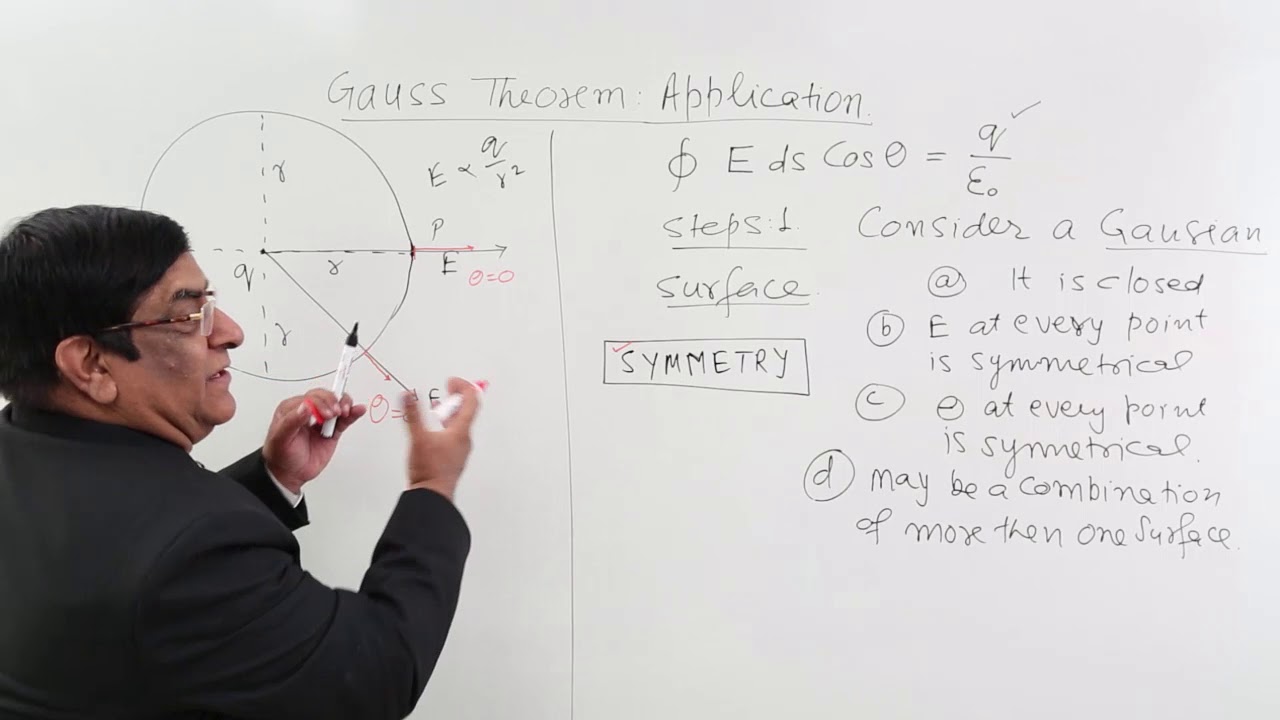 Gauss Theorem: Application.
r
E ∝ q/r²
P
q
r
E
θ=0
r
E
θ=
∮ E ds Cos θ = q/ε₀ ✓
Steps: 1. Consider a Gausian
Surface.
✓SYMMETRY
ⓐ It is closed
ⓑ E at every point
is symmetrical
ⓒ θ at every point
is symmetrical.
ⓓ may be a combination
of more then one Surface.